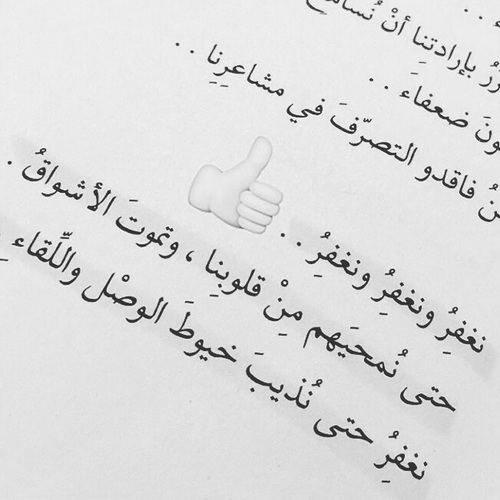 ء . .
بإرادتنِا أنْ نُسامِح
ضعفاء . .
فاقدو التصرّفَ في مشاعرِنا . .
نغفرُ ونغفرُ ونغفرُ . .
حتى نُمحيَهم مِنْ قلوبنِا ، وتموتَ الأشواقُ .
نغفرُ حتى نُذيبَ خيوطَ الوصْل واللِّقاء